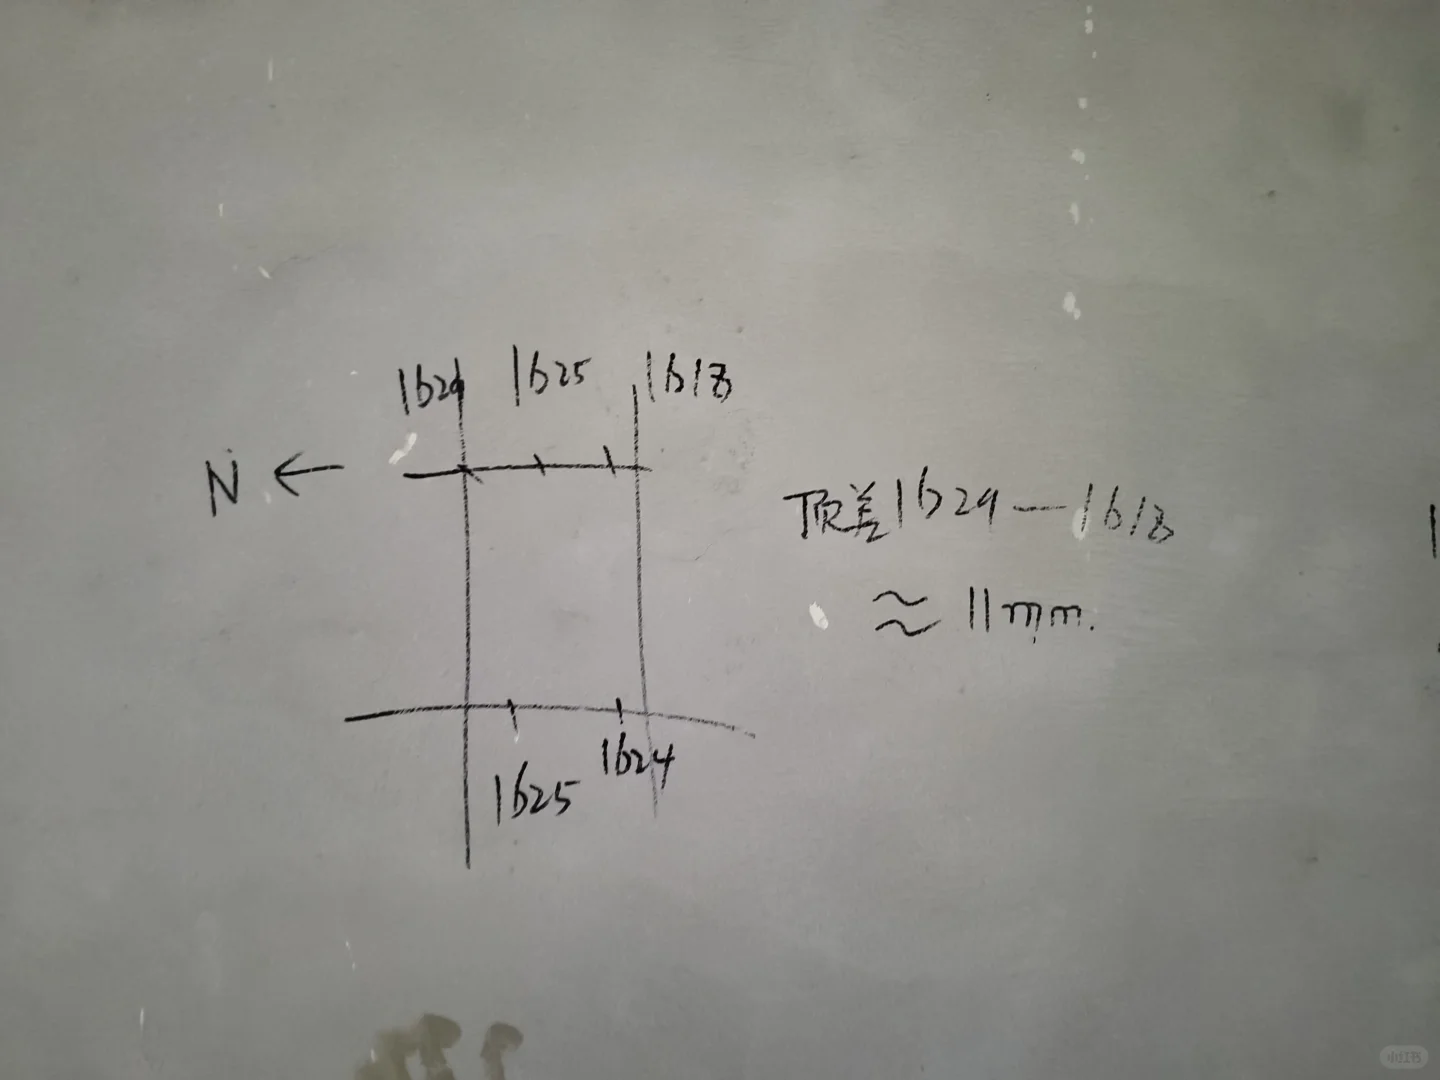 1629 1625 1618
N ←
顶差1629—1618
≈ 11mm.
1624
1625
小红书